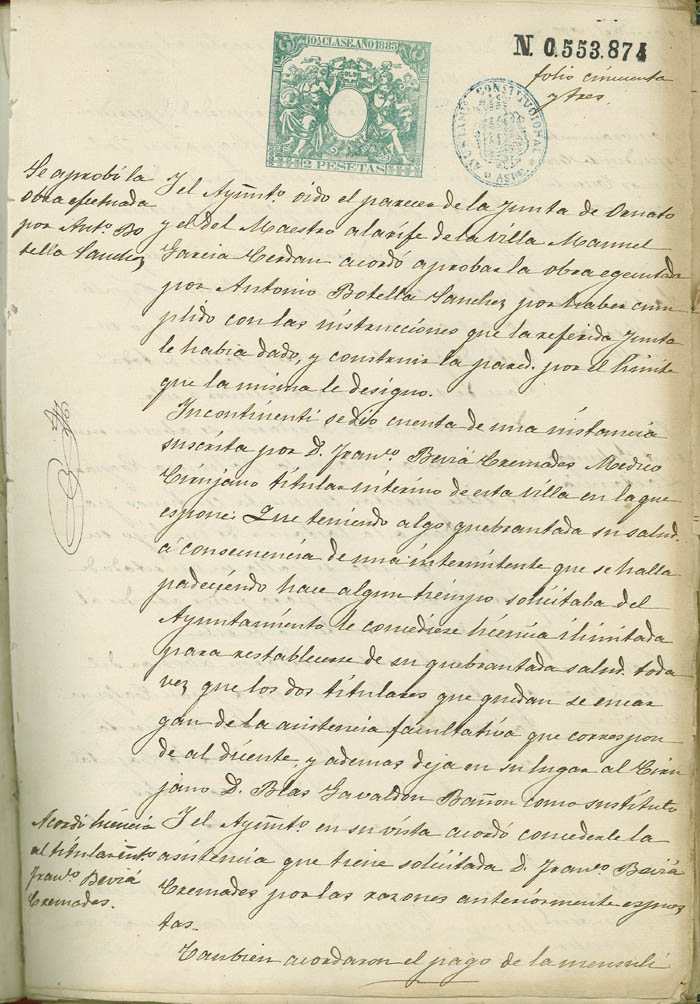 10ª CLASE. AÑO 1885
2 PESETAS
N. 0.553.874
folio cincuenta
y tres.
AYUNTAMᵗᵒ CONSTITUCIONAL
ASPE
Se aprobó la
obra efectuada
por Antº Bo
tella Sanchez
Y el Ayũntº. oido el parecer de la Junta de Ornato
y el del Maestro alarife de la villa Manuel
Garcia Cerdan acordó aprobar la obra egecutada
por Antonio Botella Sanchez por haber cum
plido con las instrucciones que la referida Junta
le habia dado, y construir la pared. por el limite
que la misma le designo.
Incontinenti se dió cuenta de una instancia
suscrita por D. Franᶜº Beviá Cremades Medico
Cirujano titular interino de esta villa en la que
espone: Que teniendo algo quebrantada su salud.
á consecuencia de una intermitente que se halla
padeciendo hace algun tiempo solicitaba del
Ayuntamiento le concediese licencia ilimitada
para restablecerse de su quebrantada salud. toda
vez que los dos titulares que quedan se encar
gan de la asistencia facultativa que correspon
de al dicente, y ademas deja en su lugar al Ciru
jano D. Blas Gavaldon Bañon como sustituto
Acordó licencia
al titular
Franᶜº Beviá
Cremades.
Y el Ayũntº en su vista acordó concederle la
asistencia que tiene solicitada D. Franᶜº Beviá
Cremades por las razones anteriormente espues
tas.
Tambien acordaron el pago de la mensuli